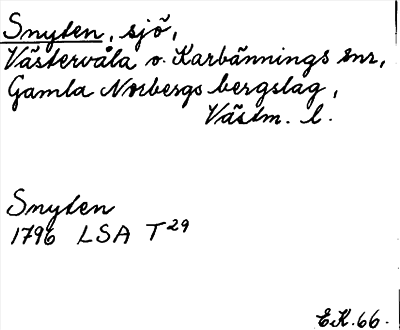 Snyten, sjö,
Västervåla o. Karbännings snr,
Gamla Norbergs bergslag,
Västm. l.
Snyten
1796 LSA T29
E.K. 66.